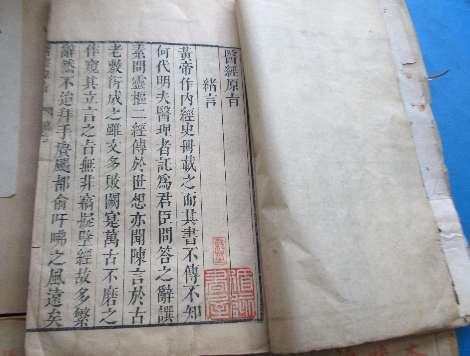 醫經原旨
緒言
黃帝作內經史冊載之而其書不傳不知
何代明夫醫理者託爲君臣問答之辭譔
素問靈樞二經傳於世想亦聞陳言於古
老敷衍成之雖文多敗闕寔萬古不磨之
作窺其立言之旨無非竊擬壁經故多繁
辭然不迨拜手賡颺都俞吁咈之風遠矣